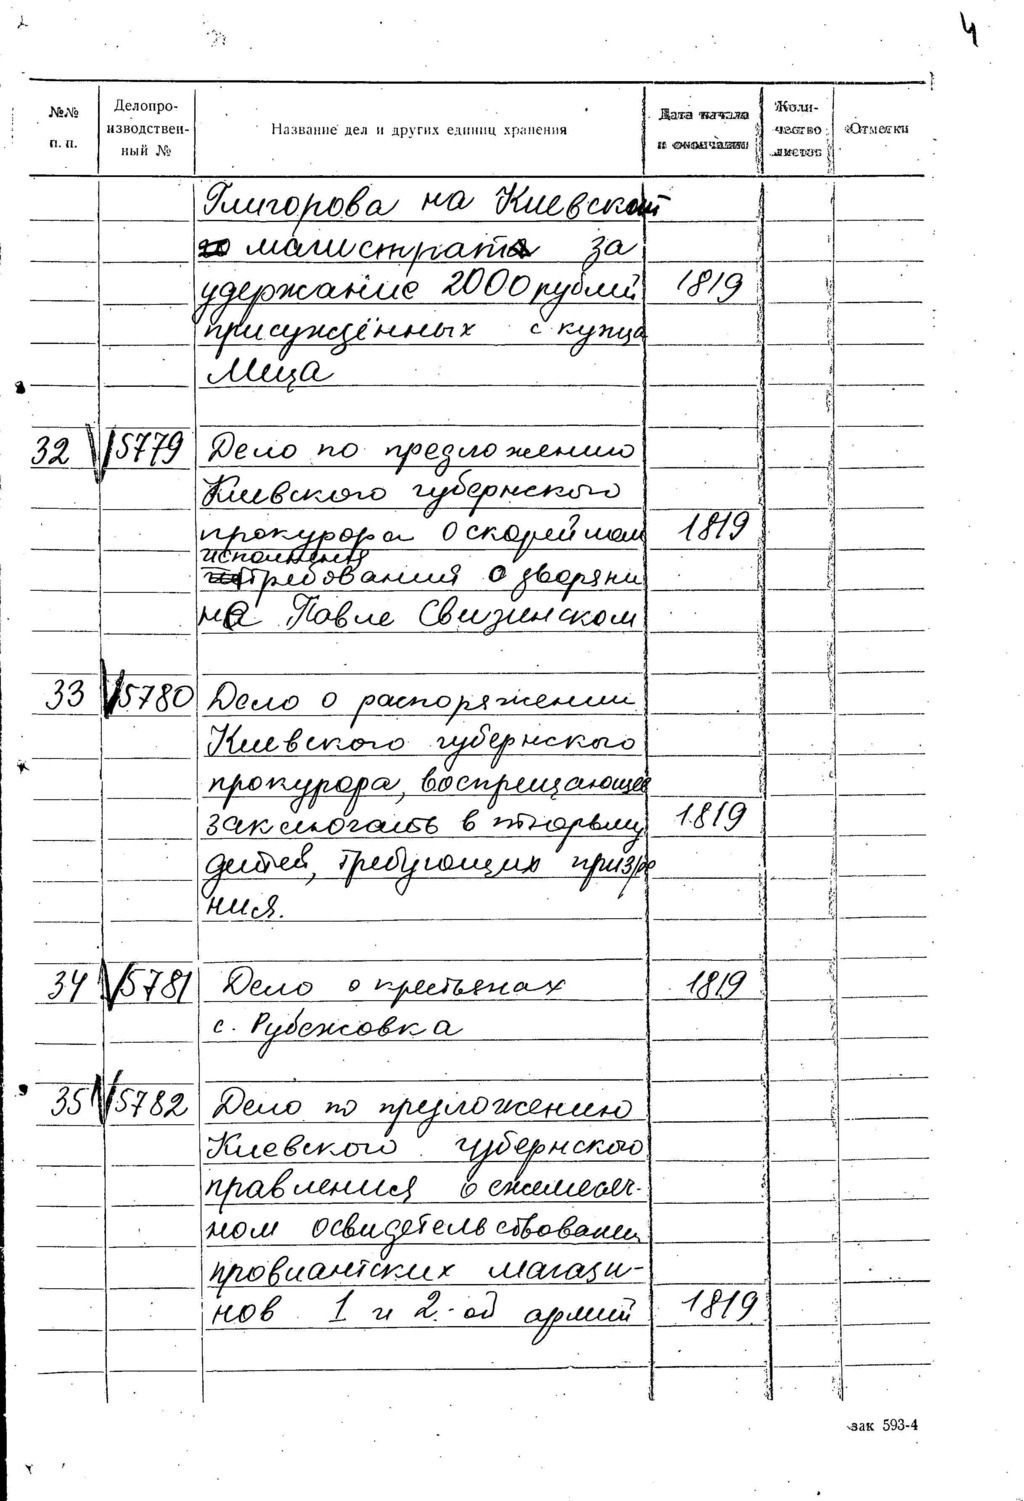 4
№№ п. п.
Делопро-
изводствен-
ный №
Название дел и других единиц хранения
Дата начала
и окончания
Коли-
чество
листов
Отметки
Глигорова на Киевский
магистрат за
удержание 2000 рублей 1819
присуждённых с купца
Меца
32 5779 Дело по предложению
Киевского губернского
прокурора о скорейшем 1819
исполнения
требований о дворяни
не Павле Свизинском
33 5780 Дело о распоряжении
Киевского губернского
прокурора, воспрещающее
заключать в тюрьму 1819
детей, требующих призре
ния.
34 5781 Дело о крестьянах 1819
с. Рубежовка
35 5782 Дело по предложению
Киевского губернского
правления о ежемесяч-
ном освидетельствовании
провиантских магази-
нов 1 и 2-ой армий 1819
зак 593-4